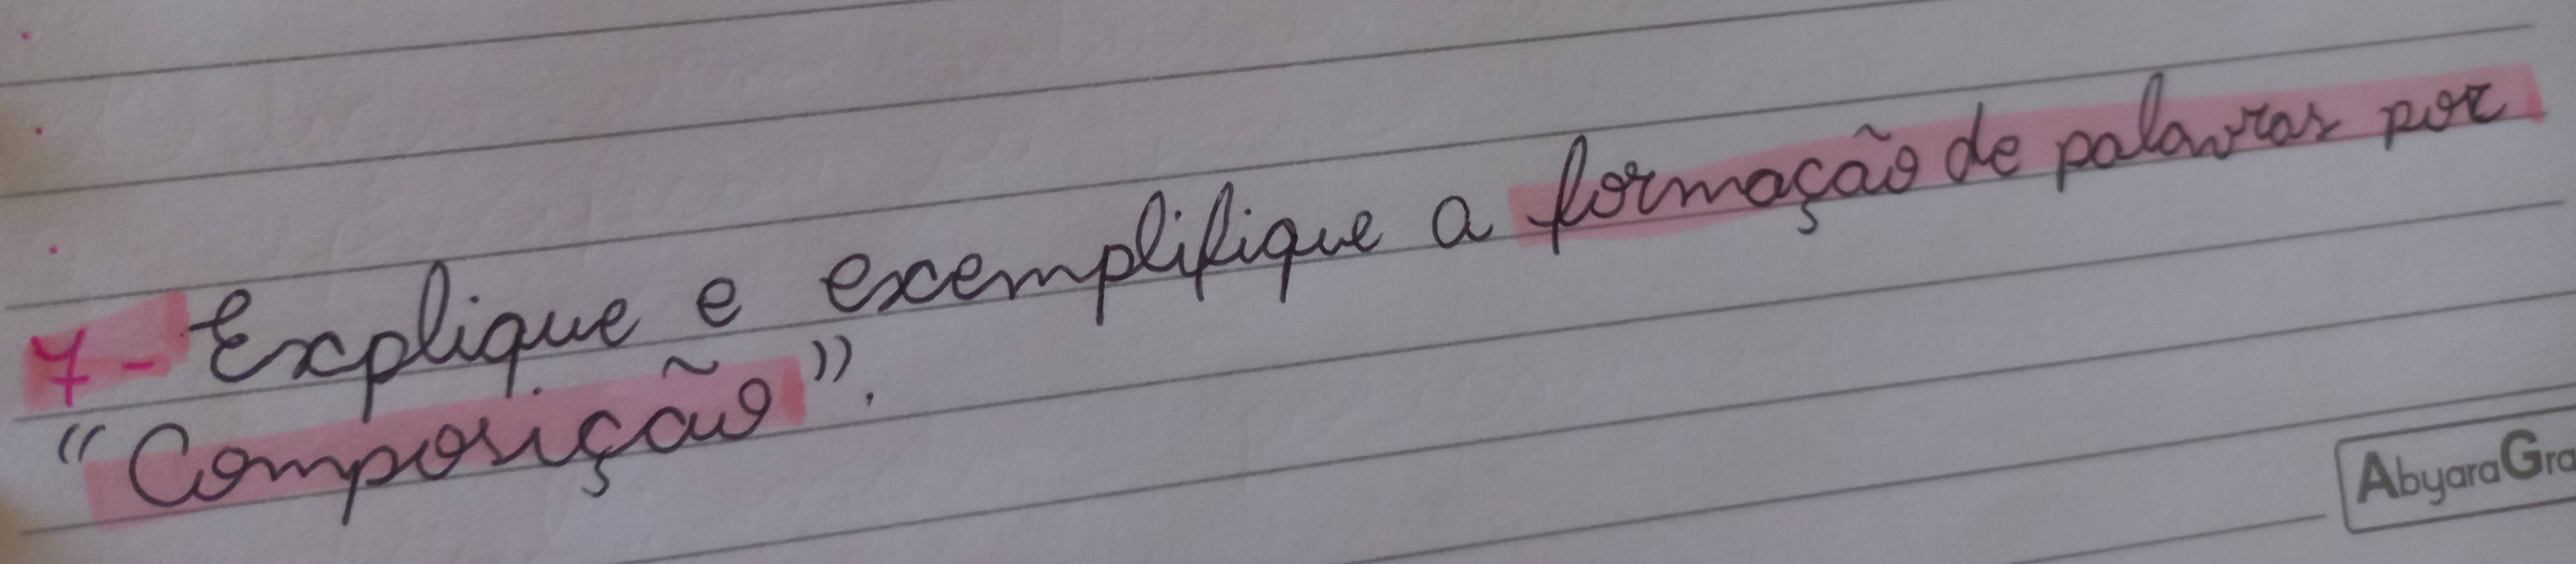 7- Explique e exemplifique a formação de palavras por
"Composição".
AbyaraGra